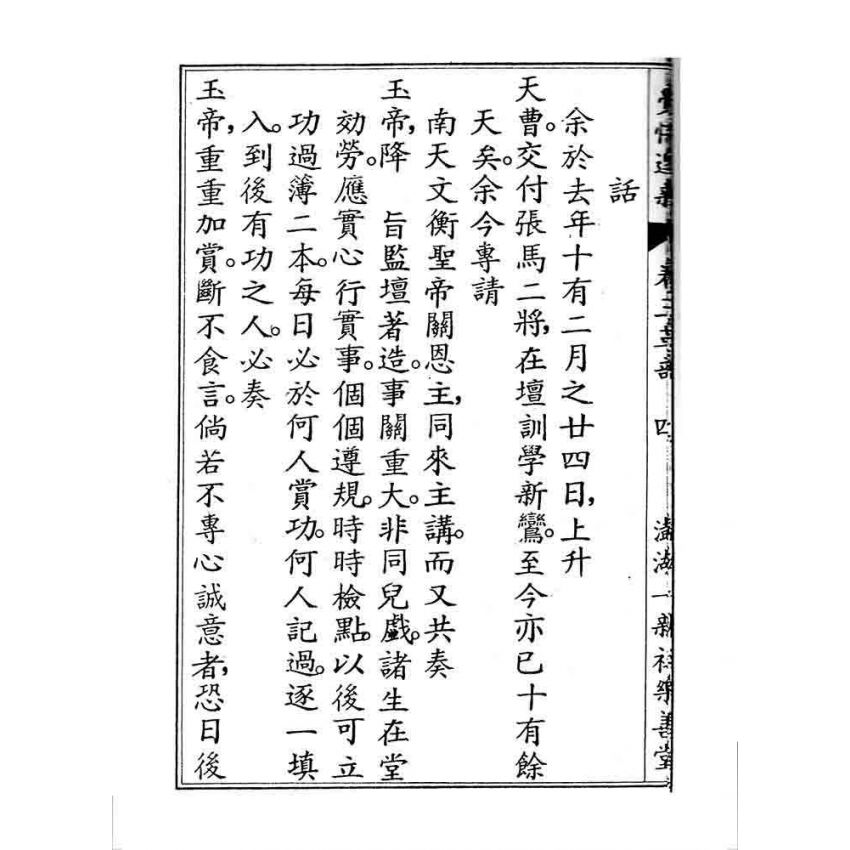 覺悟選新　卷三革部　四　澎湖一新社樂善堂
話
余於去年十有二月之廿四日，上升
天曹。交付張馬二將，在壇訓學新鸞。至今亦已十有餘
天矣。余今專請
南天文衡聖帝關恩主，同來主講。而又共奏
玉帝，降　旨監壇著造。事關重大。非同兒戲。諸生在堂
効勞。應實心行實事。個個遵規。時時檢點。以後可立
功過簿二本。每日必於何人賞功。何人記過。逐一填
入。到後有功之人。必奏
玉帝，重重加賞。斷不食言。倘若不專心誠意者，恐日後